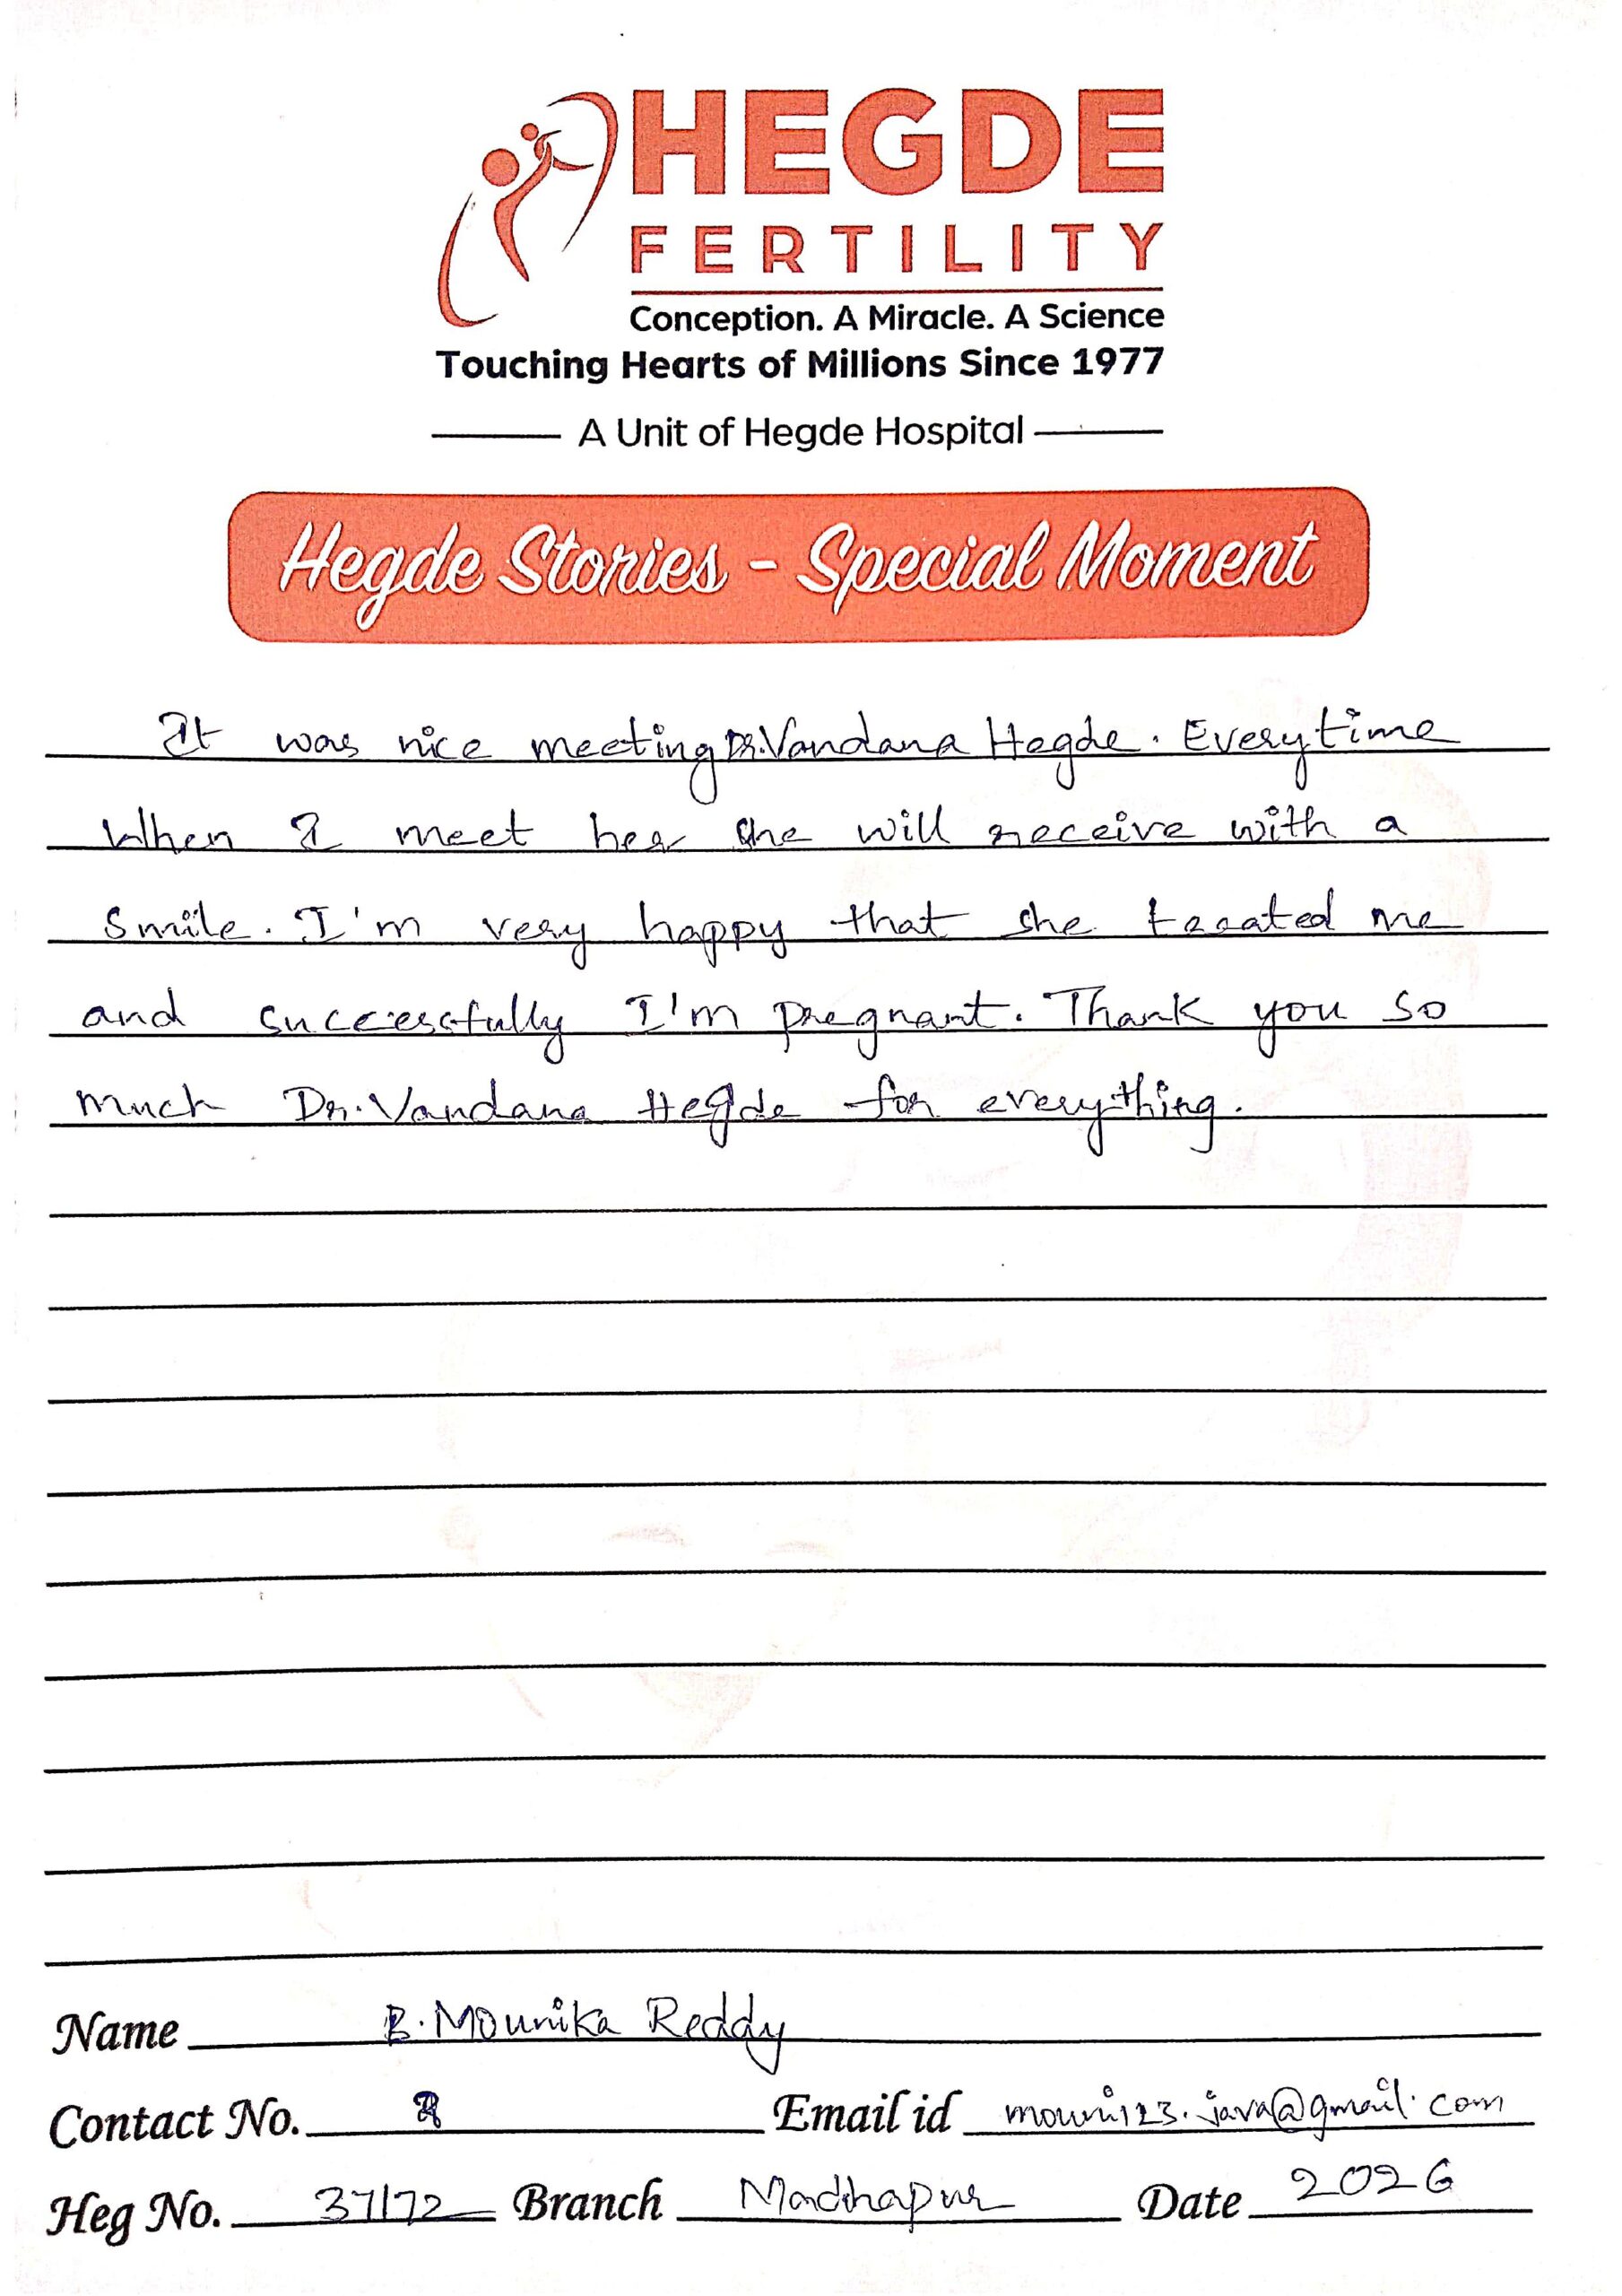 HEGDE
FERTILITY
Conception. A Miracle. A Science
Touching Hearts of Millions Since 1977
A Unit of Hegde Hospital
Hegde Stories - Special Moment
It was nice meeting Dr.Vandana Hegde. Everytime
When I meet her she will receive with a
Smile. I'm very happy that she treated me
and successfully I'm pregnant. Thank you so
much Dr.Vandana Hegde for everything.
Name B.Mounika Reddy
Contact No. Email id mouni123.java@gmail.com
Heg No. 37172 Branch Madhapur Date 2026